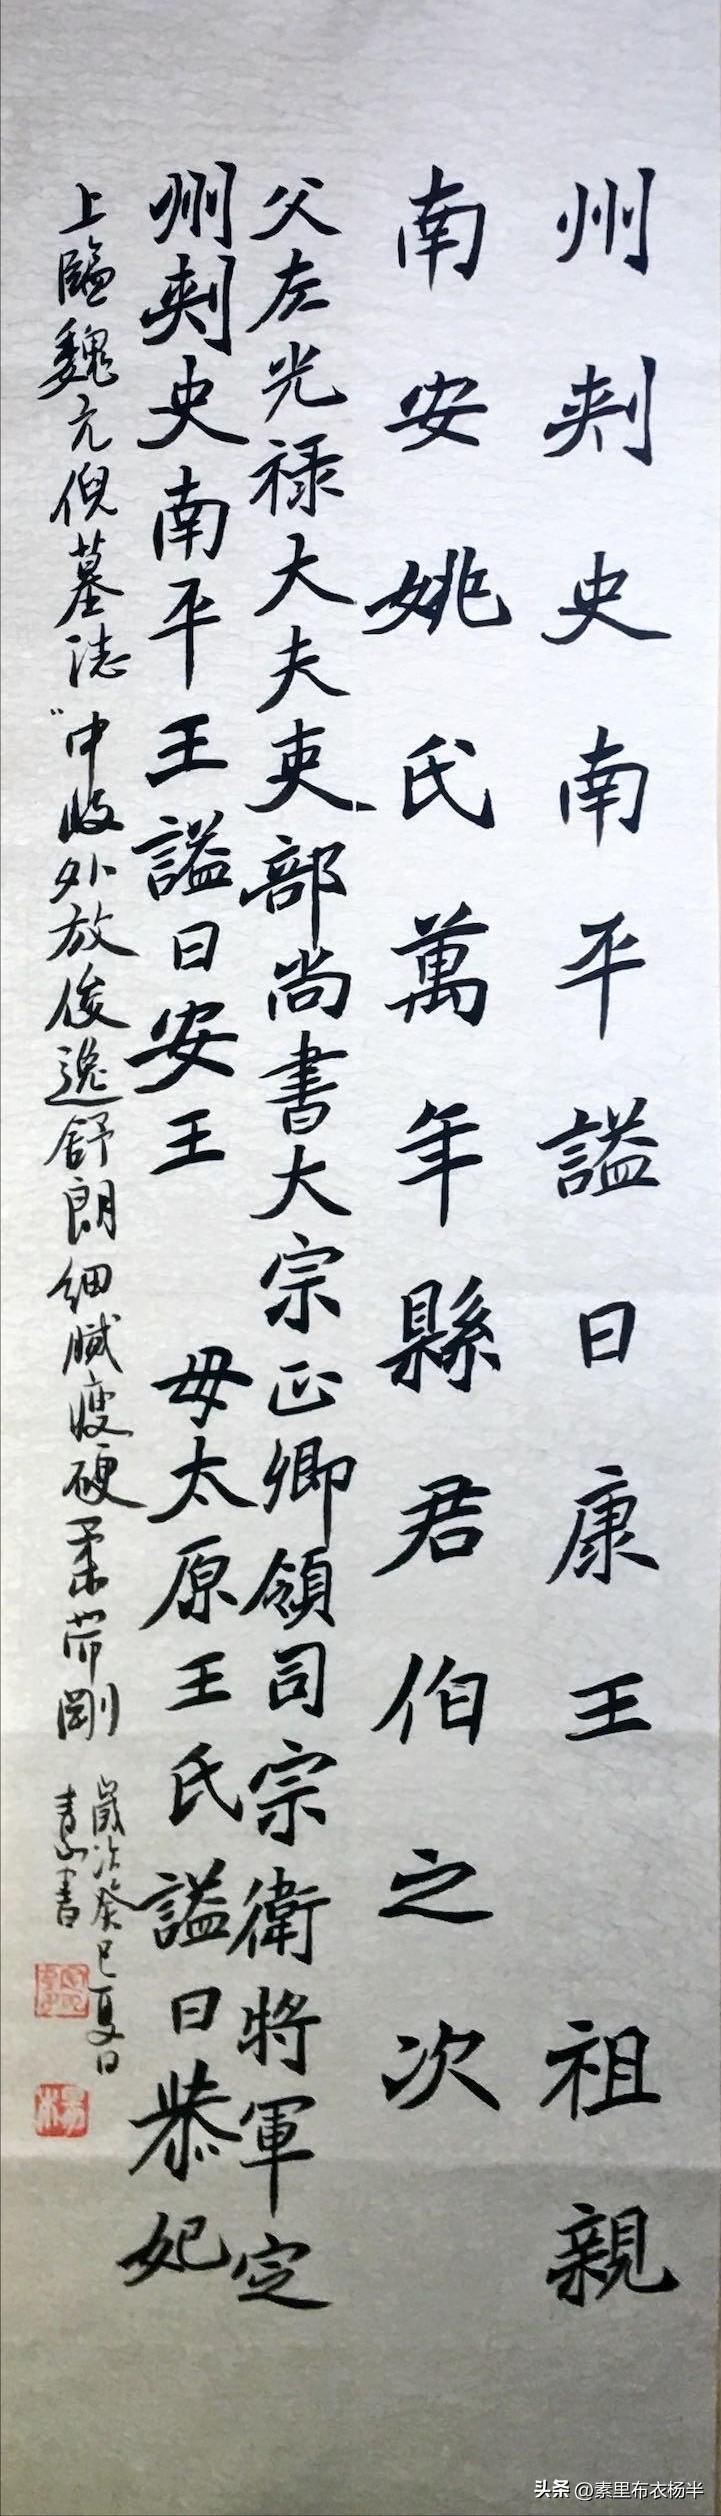 州刺史南平謚曰康王 祖親
南安姚氏萬年縣君伯之次
父左光禄大夫吏部尚書大宗正卿領司宗衛將軍定
州刺史南平王謚曰安王 母太原王氏謚曰恭妃
上臨魏元倪墓誌“中收外放俊逸舒朗细腻瘦硬柔带剛
歲次癸巳夏日
書
头条 @素里布衣杨半